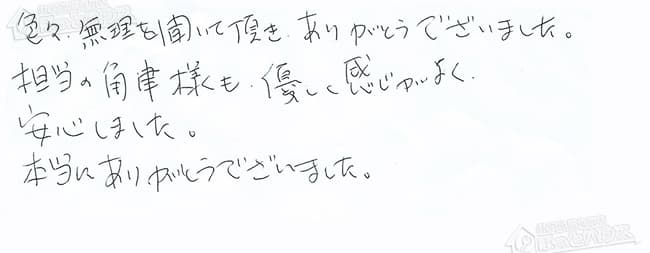 色々、無理を聞いて頂き、ありがとうございました。
担当の角津様も、優しく感じがよく、
安心しました。
本当にありがとうございました。